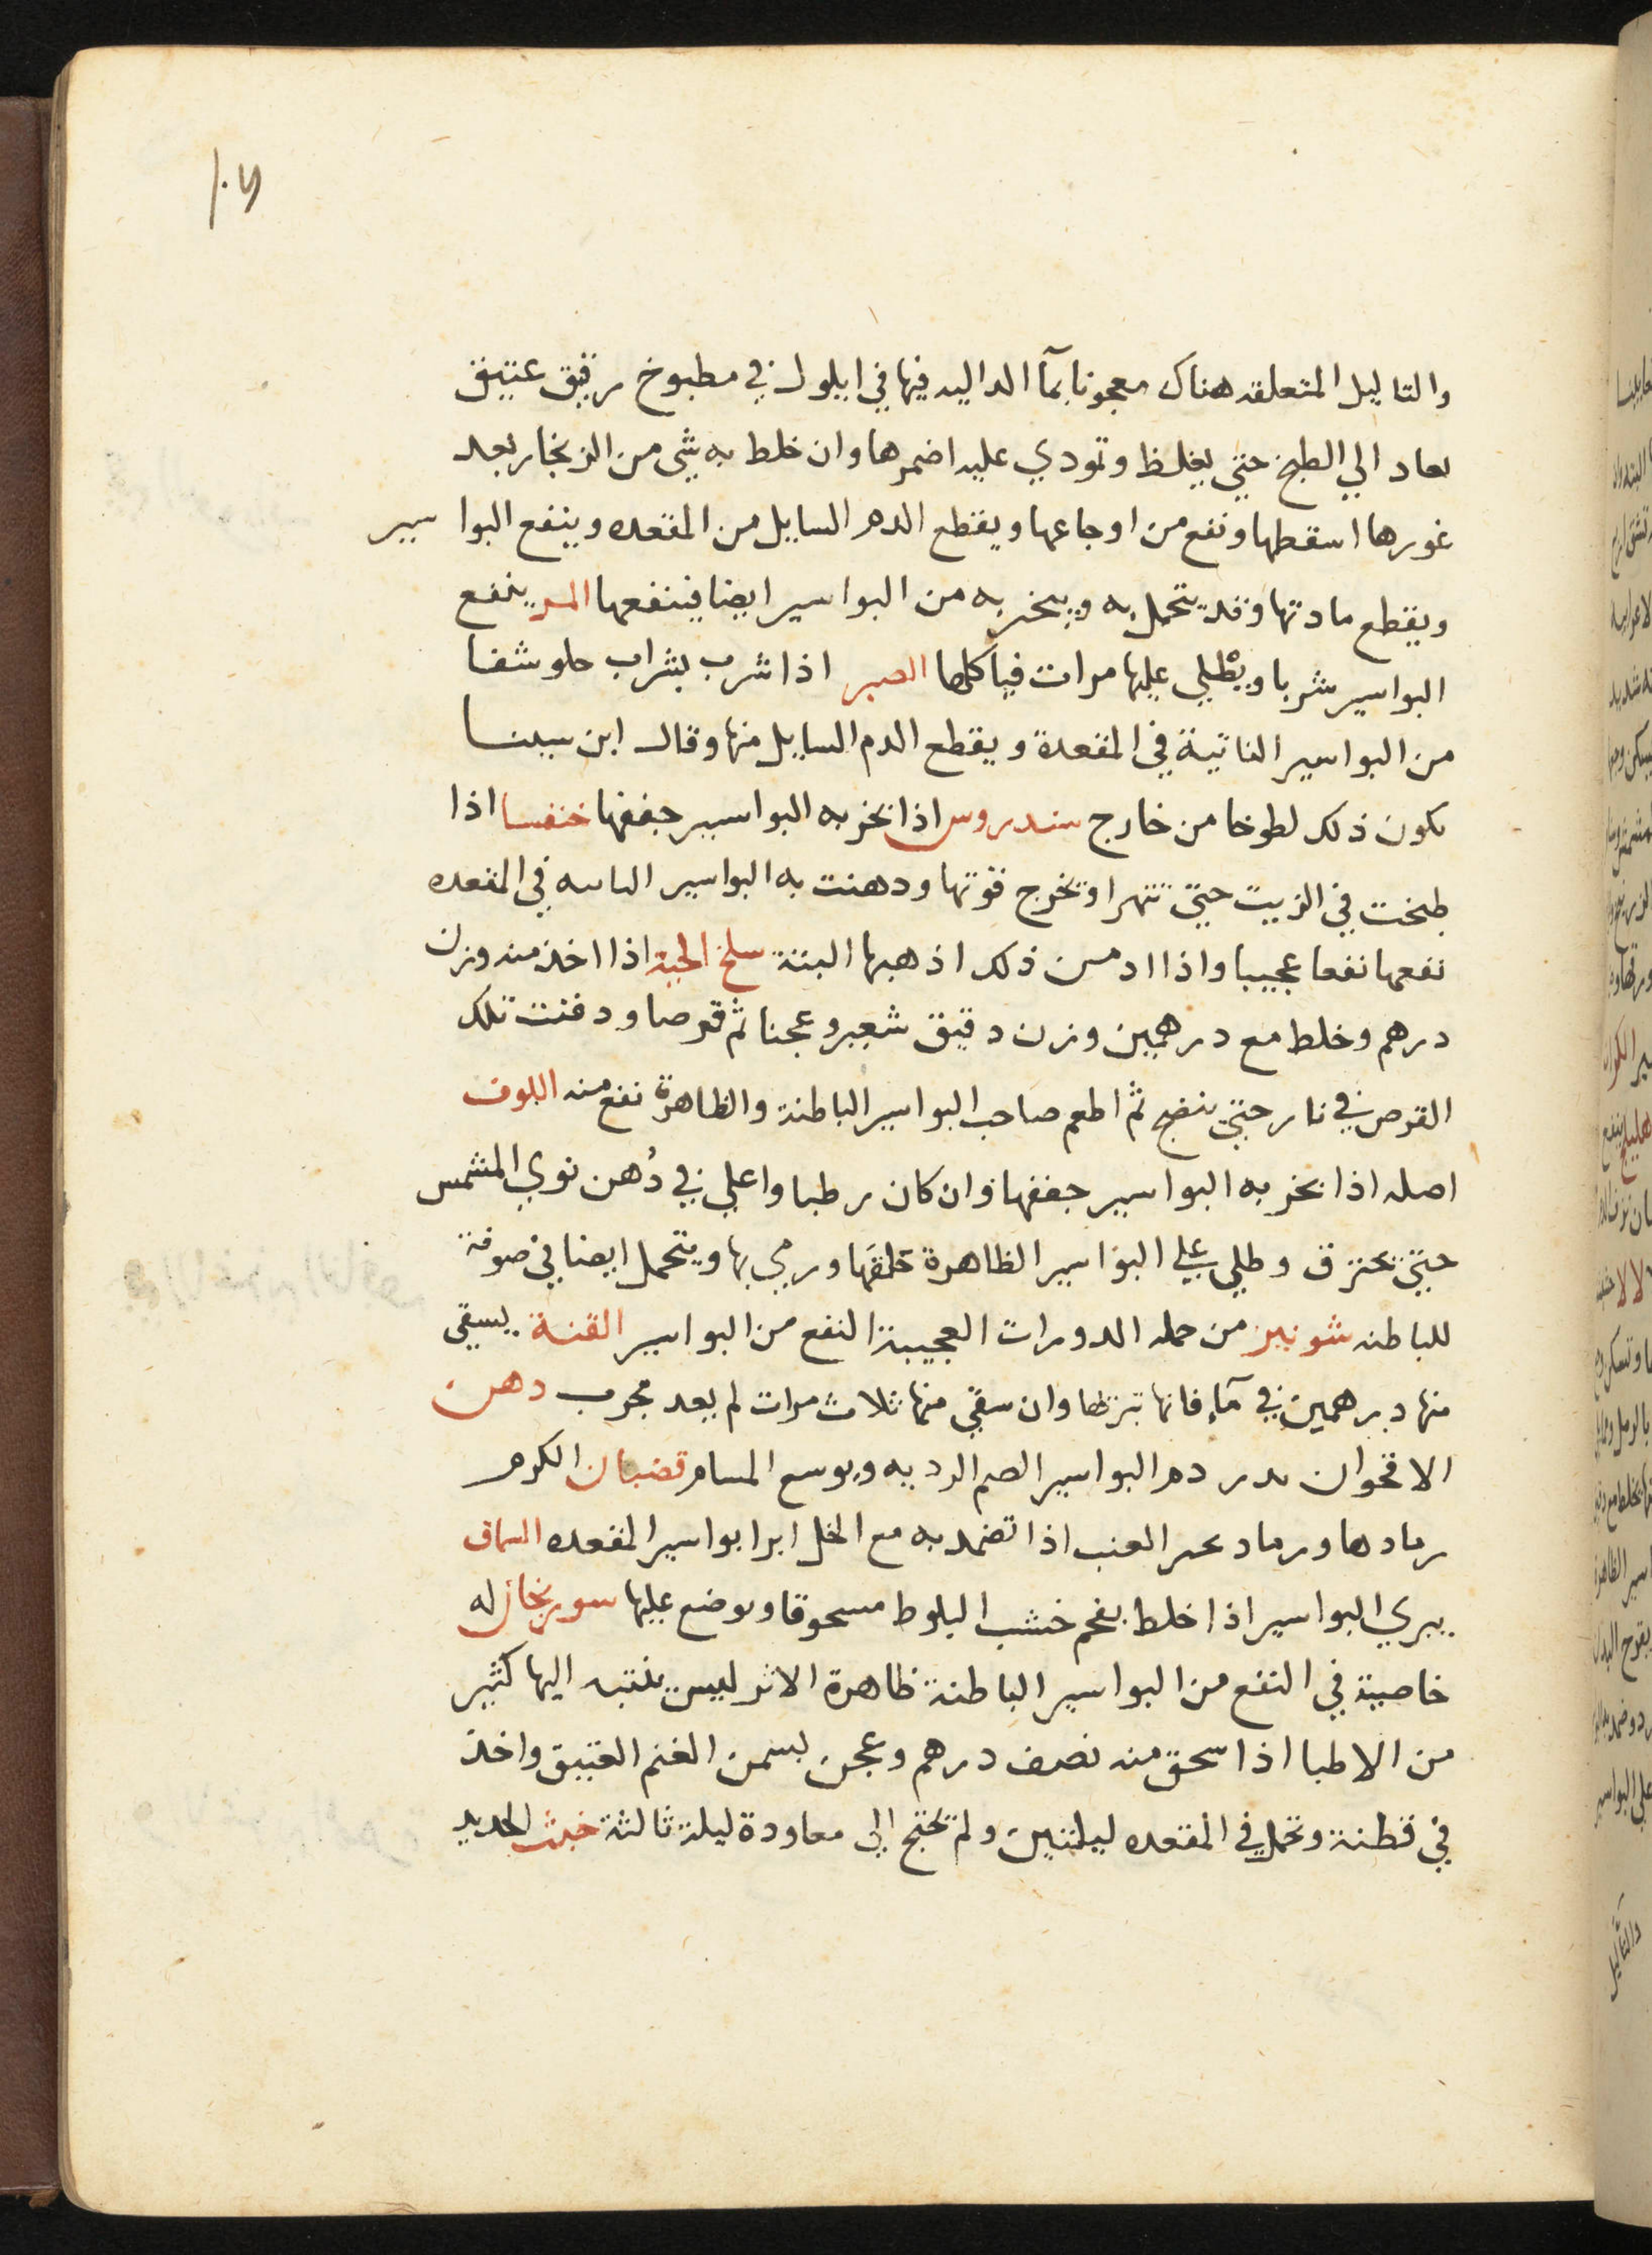 والتاليل المتعلقه هناك معجونا بمآ الداليه فيها في ايلول في مطبوخ رقيق عتيق
يعاد الي الطبخ حتي يغلظ وتمودي عليه اضمرها وان خلط به شي من الزنجار بعد
غورها اسقطها ونفع من اوجاعها ويقطع الدم السايل من المقعده وينفع البواسير
ويقطع مادتها وقد يتحمل به ويبخر به من البواسير ايضا فينفعها المر ينفع
البواسير شربا ويطلي عليها مرات فياكلها الصبر اذا شرب بشراب حلو شفا
من البواسير الناتية في المقعدة ويقطع الدم السايل منها وقال ابن سينا
يكون ذلك لطوخا من خارج سندروس اذا بخر به البواسير جففها خنفسا اذا
طبخت في الزيت حتي تتهرا وتخرج قوتها ودهنت به البواسير الناتيه في المقعده
نفعها نفعا عجيبا واذا ادمن ذلك اذهبها البتة سلخ الحية اذا اخذ منه وزن
درهم وخلط مع درهمين وزن دقيق شعير وعجنا ثم قرصا ودفنت تلك
القرص في نار حتي ينضج ثم اطعم صاحب البواسير الباطنة والظاهرة نفع منه اللوف
اصله اذا بخر به البواسير جففها وان كان رطبا واغلي في دُهن نوي المشمس
حتي يحترق وطلي علي البواسير الظاهرة حلقها ورمي بها ويتحمل ايضا في صوفة
للباطنه شونيز من حمله الدورات العجيبة النفع من البواسير القنة يسقي
منها درهمين في مآء فانها تبرئها وان سقي منها ثلاث مرات لم يعد مجرب دهن
الاقحوان يدر دم البواسير الصم الرديه ويوسع المسام قضبان الكرم
رمادها ورماد عجير العنب اذا تضمد به مع الخل ابرا بواسير المقعده السماق
يبري البواسير اذا خلط بفحم خشب البلوط مسحوقا ويوضع عليها سورنجان له
خاصية في النفع من البواسير الباطنة ظاهرة الاثر ليس ينتبه اليها كثير
من الاطبا اذا سحق منه نصف درهم وعجن بسمن الغنم العتيق واخذ
في قطنة وتحمل في المقعده ليلتين ولم تحتج الي معاودة ليلة ثالثة خبث الحديد